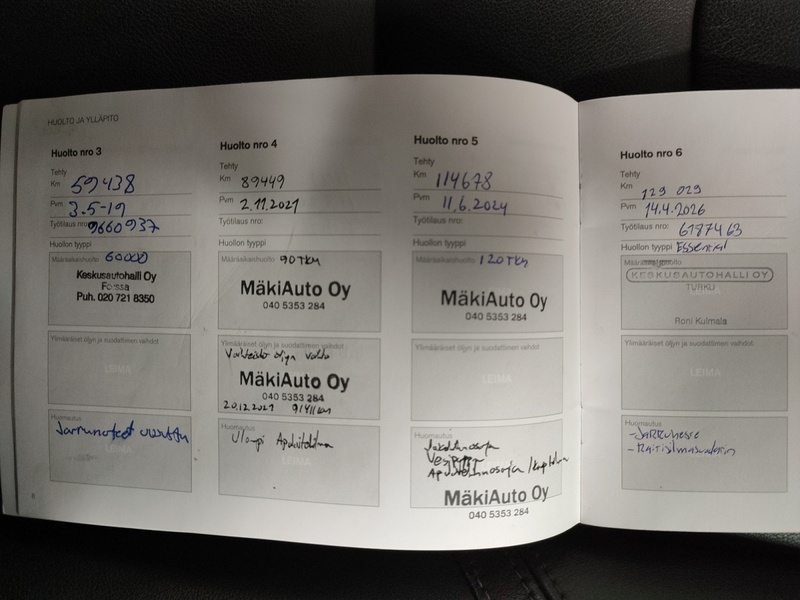 HUOLTO JA YLLÄPITO
Huolto nro 3
Tehty
Km 59438
Pvm 3.5-19
Työtilaus nro: 9660937
Huollon tyyppi
Määräaikaishuolto 60000
Keskusautohalli Oy
Forssa
Puh. 020 721 8350
Ylimääräiset öljyn ja suodattimen vaihdot
LEIMA
Huomautus
Jarrunesteet uusittu
LEIMA
8
Huolto nro 4
Tehty
Km 89449
Pvm 2.11.2021
Työtilaus nro:
Huollon tyyppi
Määräaikaishuolto 90 TKM
MäkiAuto Oy
040 5353 284
Ylimääräiset öljyn ja suodattimen vaihdot
Vaihteisto öljyn vaihto
MäkiAuto Oy
040 5353 284
20.12.2021 91411 km
Huomautus
Ulompi Apulaitehihna
LEIMA
Huolto nro 5
Tehty
Km 114678
Pvm 11.6.2024
Työtilaus nro:
Huollon tyyppi
Määräaikaishuolto 120 TKM
MäkiAuto Oy
040 5353 284
Ylimääräiset öljyn ja suodattimen vaihdot
LEIMA
Huomautus
Jakohihnasarja
Vesipumppu
MäkiAuto Oy
040 5353 284
Huolto nro 6
Tehty
Km 129 029
Pvm 14.4.2026
Työtilaus nro: 6187463
Huollon tyyppi Essential
Määräaikaishuolto
KESKUSAUTOHALLI OY
TURKU
Roni Kulmala
Ylimääräiset öljyn ja suodattimen vaihdot
LEIMA
Huomautus
- Jarruneste
- Raitisilmasuodatin
LEIMA